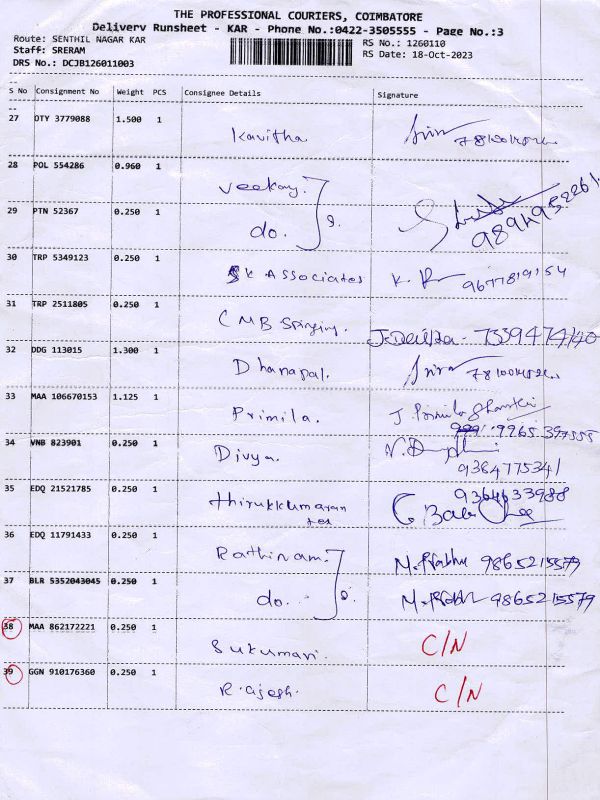 THE PROFESSIONAL COURIERS, COIMBATORE
Delivery Runsheet - KAR - Phone No.:0422-3505555 - Page No.:3
Route: SENTHIL NAGAR KAR
RS No.: 1260110
Staff: SRERAM
RS Date: 18-Oct-2023
DRS No.: DCJB126011003
S No Consignment No Weight PCS Consignee Details Signature
27 OTY 3779088 1.500 1
Kavitha
28 POL 554286 0.960 1
Veekay.
29 PTN 52367 0.250 1
do. 9894952261
30 TRP 5349123 0.250 1
SK Associates 9677819154
31 TRP 2511805 0.250 1
CMB Spinning. 7339474740
32 DDG 113015 1.300 1
Dhanapal.
33 MAA 106670153 1.125 1
Primila. 9965397555
34 VNB 823901 0.250 1
Divya. 9384775341
35 EDQ 21521785 0.250 1
Thirukkumaran 9364633988
36 EDQ 11791433 0.250 1
Rathinam. M. Prabhu 9865215579
37 BLR 5352043045 0.250 1
do. M. Prabhu 9865215579
38 MAA 862172221 0.250 1
Sukumari. C/N
39 GGN 910176360 0.250 1
Rajesh. C/N